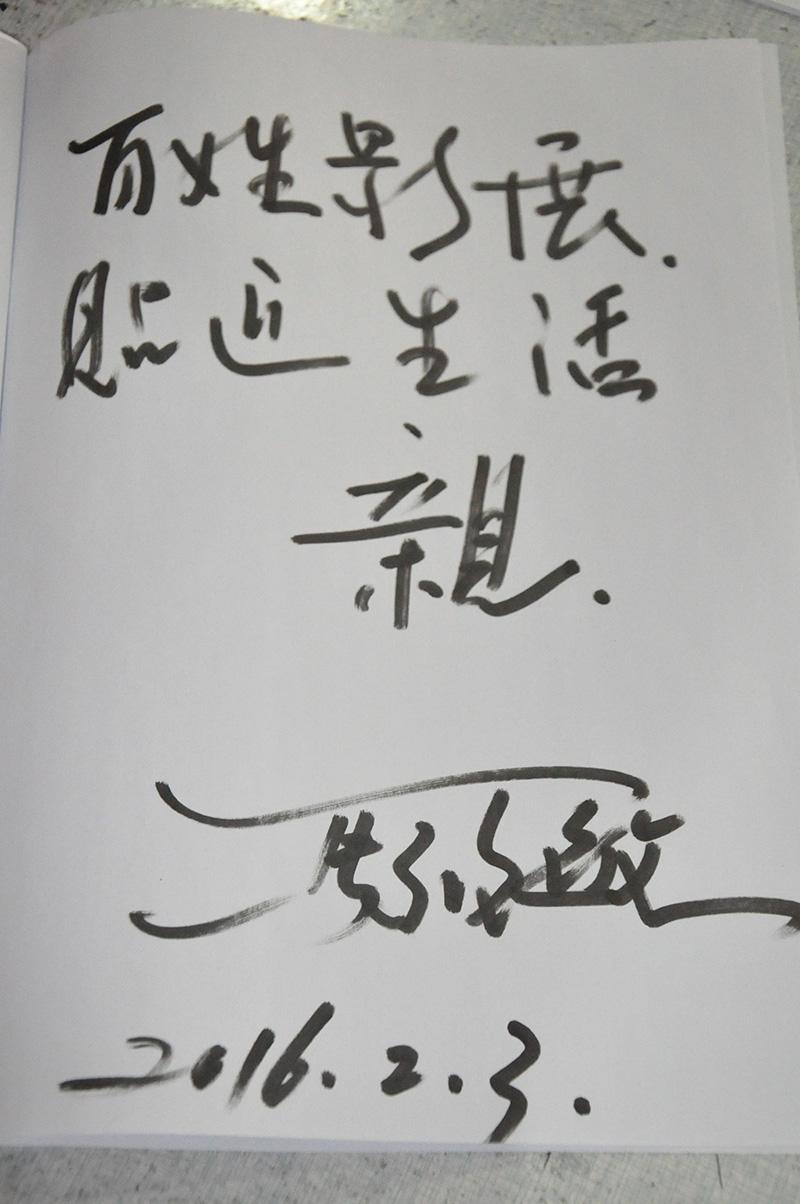 百姓影展.
贴近生活
親.
2016.2.3.